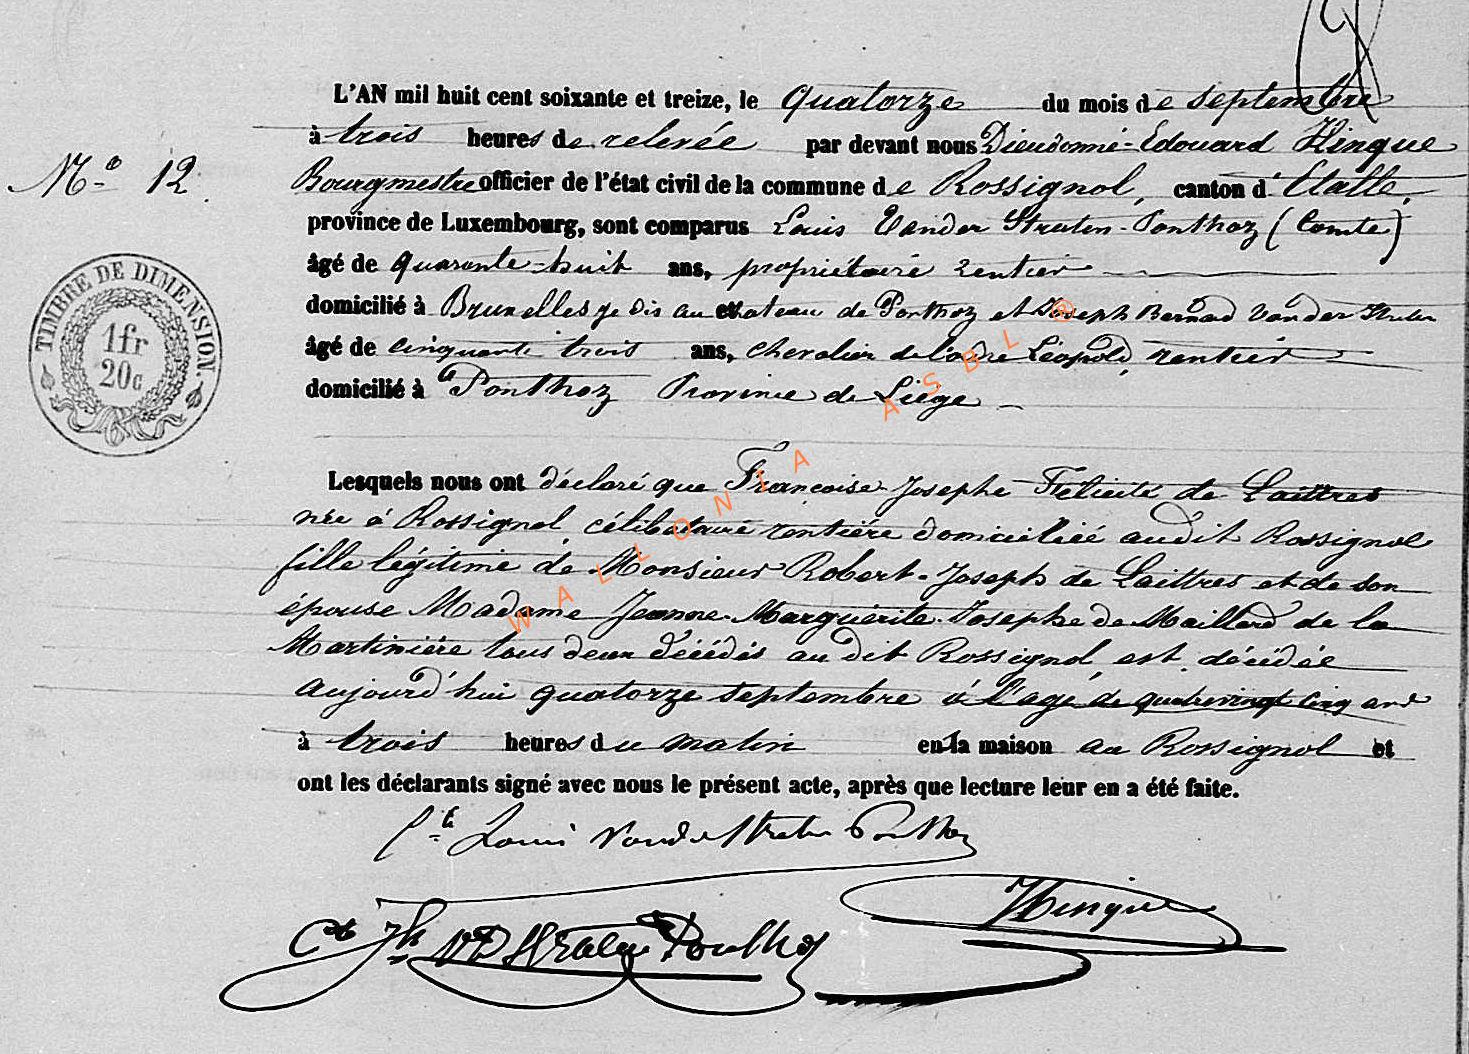 L'AN mil huit cent soixante et treize, le quatorze du mois de septembre
à trois heures de relevée par devant nous Dieudonné-Edouard Hinque
N.o 12
Bourgmestre officier de l'état civil de la commune de Rossignol, canton d'Etalle,
province de Luxembourg, sont comparus Louis Vander Straten-Ponthoz (Comte)
âgé de quarante-huit ans, propriétaire rentier
domicilié à Bruxelles je dis au chateau de Ponthoz et Joseph Bernard Vander Straten
âgé de cinquante trois ans, chevalier de l'odre Léopold, rentier
domicilié à Ponthoz Province de Liège
TIMBRE DE DIMENSION
1fr
20c
Lesquels nous ont déclaré que Françoise-Josephe Felicité de Laittres
née à Rossignol, célibataire rentière domiciliée audit Rossignol
fille légitime de Monsieur Robert-Joseph de Laittres et de son
épouse Madame Jeanne-Marguérite-Josephe de Maillard de la
Martinière tous deux décédés au dit Rossignol est décédée
aujourd'hui quatorze septembre à l'age de quatrevingt cinq ans
à trois heures du matin en la maison au Rossignol et
ont les déclarants signé avec nous le présent acte, après que lecture leur en a été faite.
Cte Louis Vander Straten Ponthoz
Hinque
Ct Jh VD Straten Ponthoz
WALLONIA ASBL ®